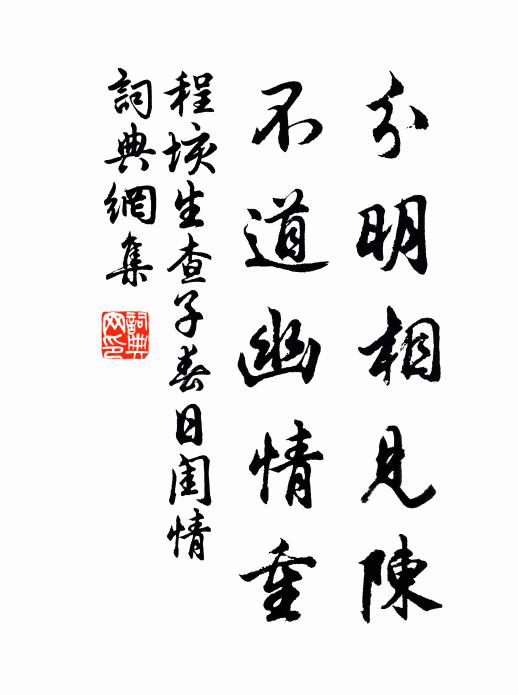 分明相見陳
不道幽情重
程垓生查子春日閨情
詞典網集
詞典網印